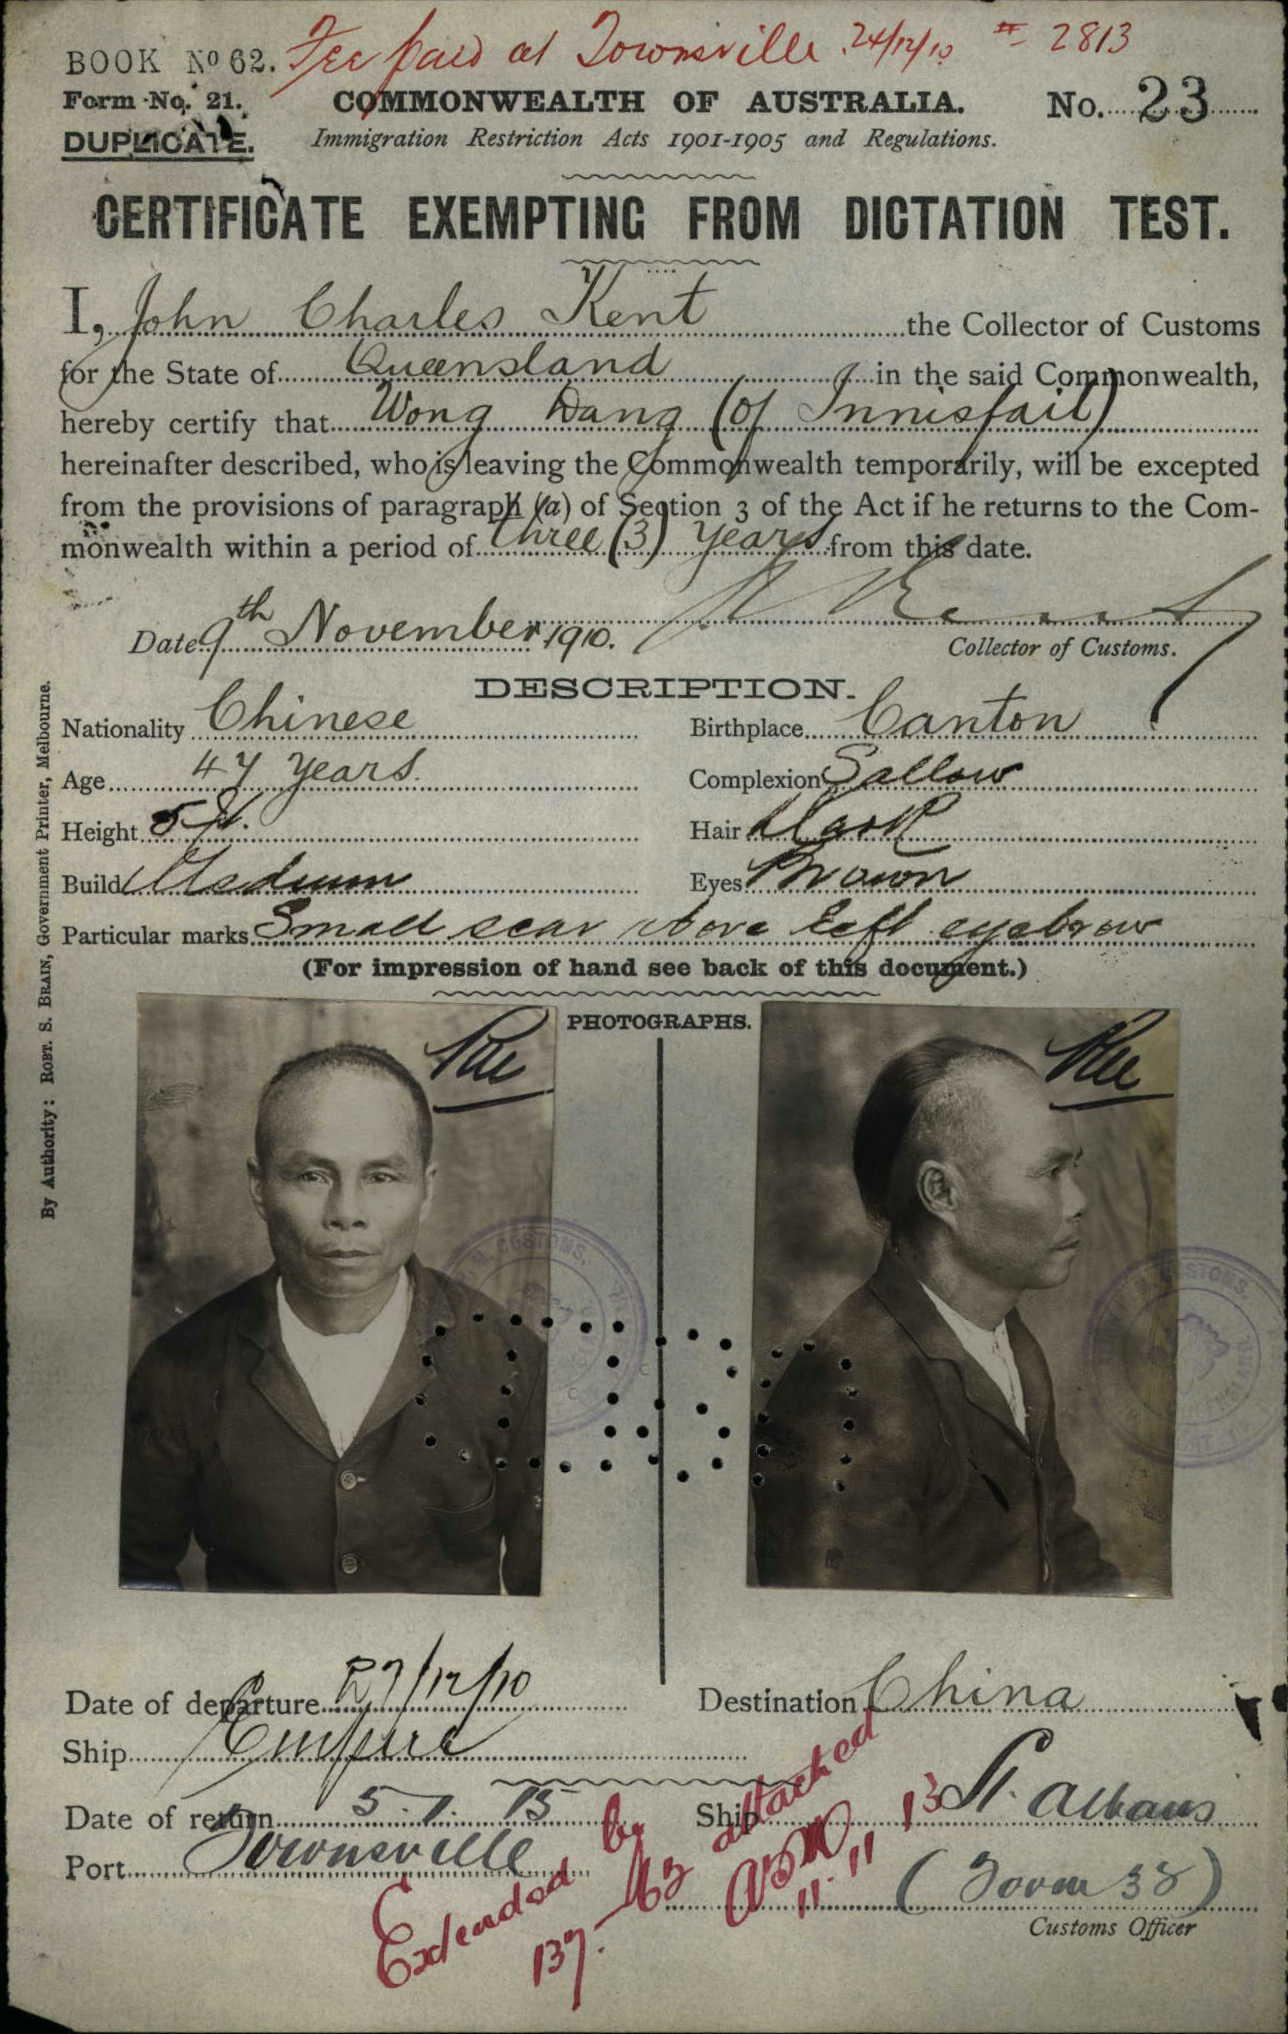 BOOK No 62. Fee paid at Townsville 24/12/10 # 2813
Form No. 21. COMMONWEALTH OF AUSTRALIA. No. 23
DUPLICATE. Immigration Restriction Acts 1901-1905 and Regulations.
CERTIFICATE EXEMPTING FROM DICTATION TEST.
I, John Charles Kent the Collector of Customs
for the State of Queensland in the said Commonwealth,
hereby certify that Wong Dang (of Innisfail)
hereinafter described, who is leaving the Commonwealth temporarily, will be excepted
from the provisions of paragraph (a) of Section 3 of the Act if he returns to the Com-
monwealth within a period of three (3) years from this date.
Date 9th November 1910.
Collector of Customs.
DESCRIPTION.
Nationality Chinese Birthplace Canton
Age 47 years. Complexion Sallow
Height 5 ft. Hair Dark
Build Medium Eyes Brown
Particular marks Small scar above left eyebrow
(For impression of hand see back of this document.)
PHOTOGRAPHS.
By Authority: ROBT. S. BRAIN, Government Printer, Melbourne.
CUSTOMS.
CUSTOMS.
Date of departure 27/12/10 Destination China
Ship Empire
Date of return 5.1.15 Ship St. Albans
Port Townsville
Extended by attached
11.11 13
(Form 32)
Customs Officer